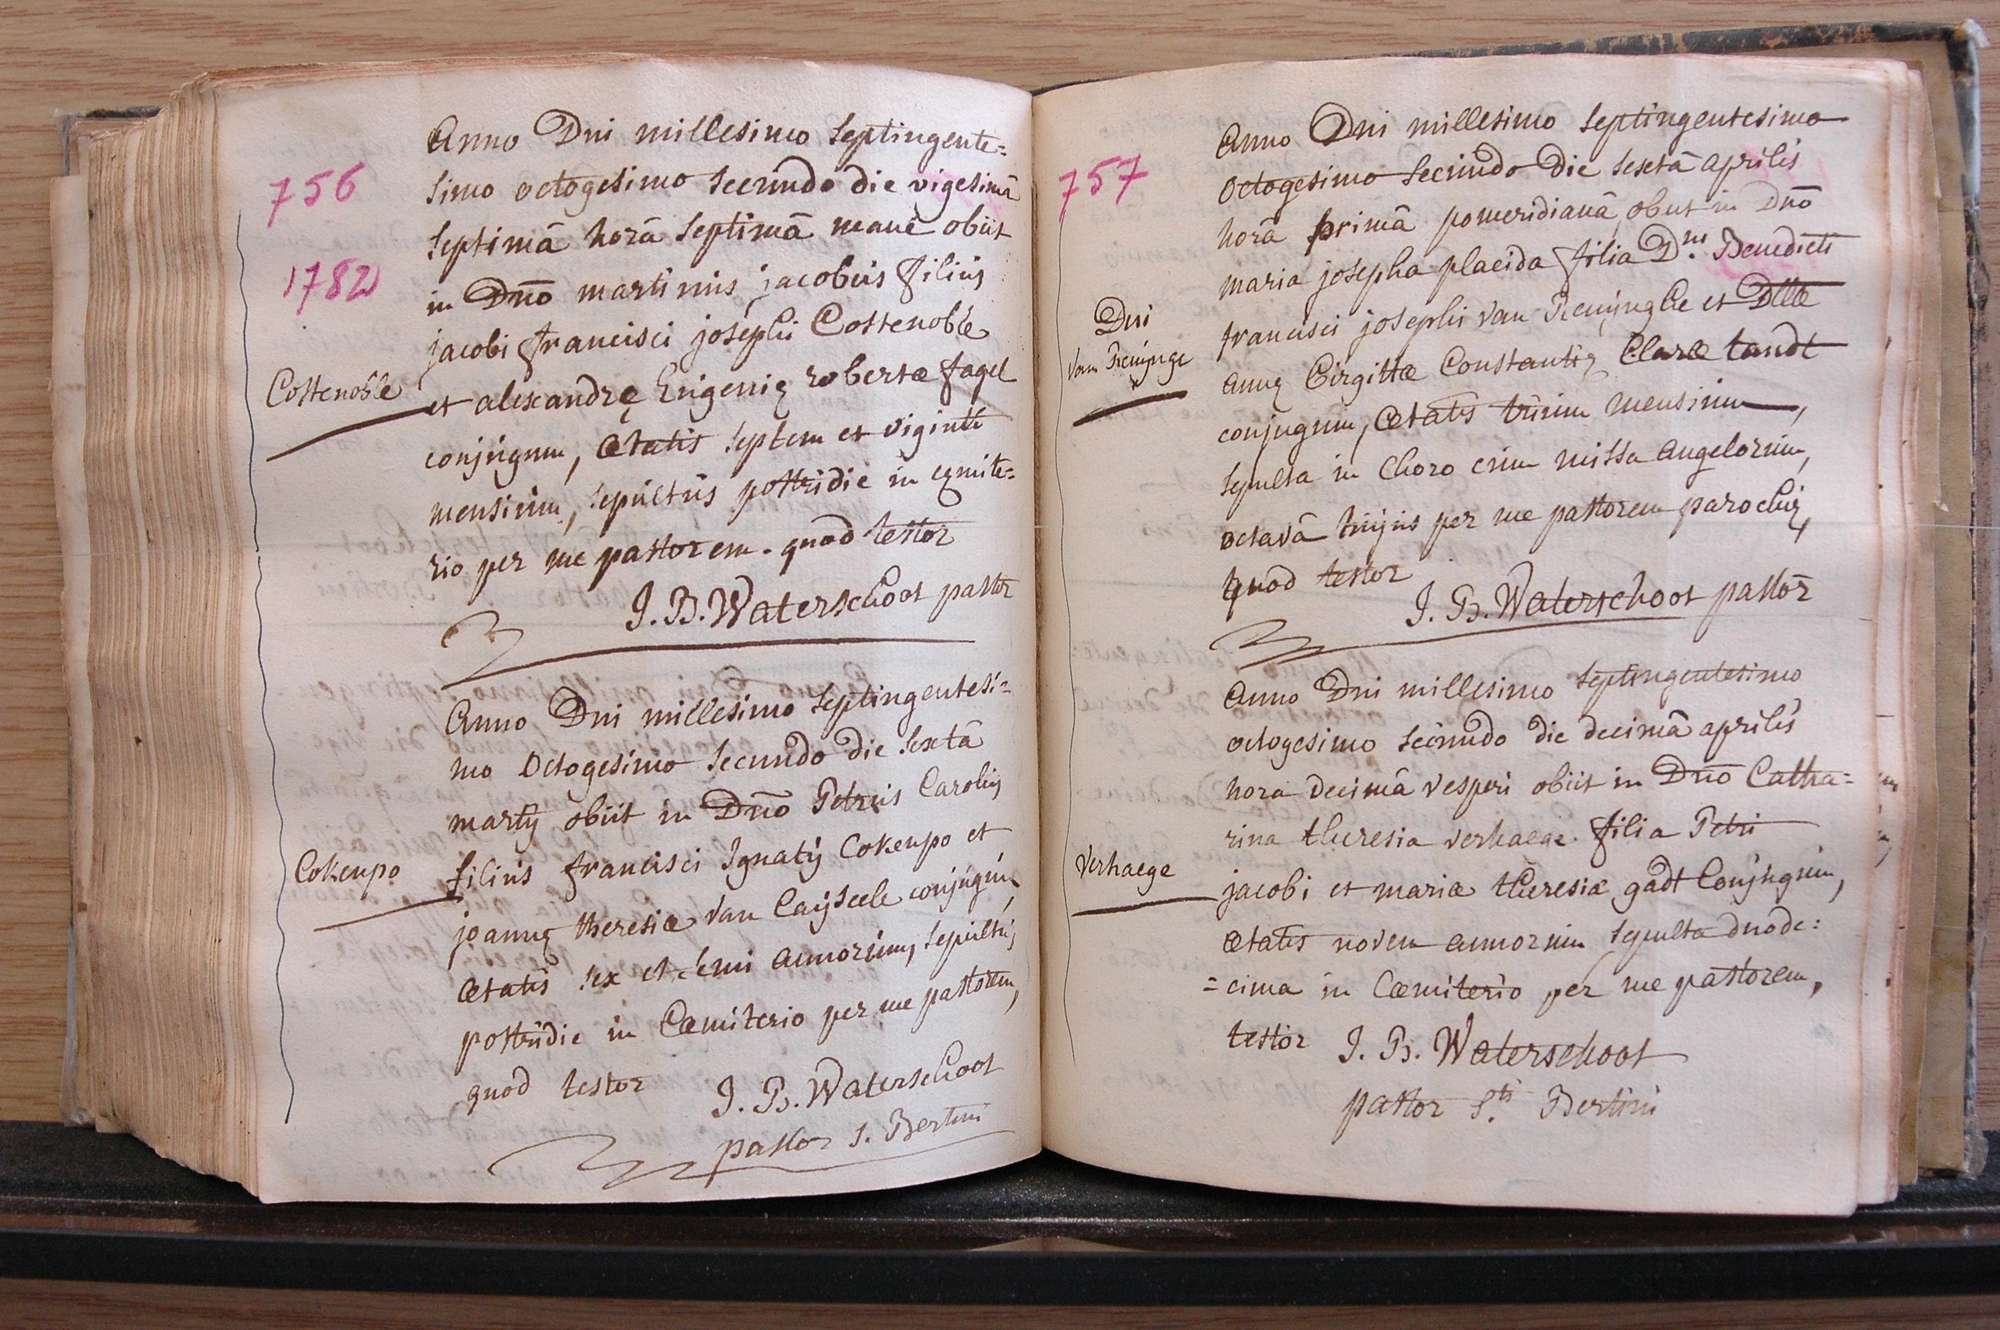 756
1782
Costenoble
Anno Dni millesimo septingente=
simo octogesimo secundo die vigesimâ
septimâ horâ septimâ mane obiit
in Dno martinus jacobus filius
jacobi francisci josephi Costenoble
et alexandrę Eugenię robertæ fagel
conjugum, ætatis septem et viginti
mensium, sepultus postridie in cęmite=
rio per me pastorem. quod testor
J. B. Waterschoot pastor
Cokenpo
Anno Dni millesimo septingentesi=
mo Octogesimo secundo die sextâ
martij obiit in Dno Petrus Carolus
filius francisci Ignatij Cokenpo et
joannę theresiæ van Caÿseele conjugum,
ætatis sex et semi annorum, sepultus
postridie in Cæmiterio per me pastorem,
quod testor J. B. Waterschoot
pastor S. Bertini
757
Dni
van Renÿnge
Anno Dni millesimo septingentesimo
Octogesimo secundo die sextâ aprilis
horâ primâ pomeridianâ obiit in Dno
maria josepha placida filia D.ni Benedicti
francisci josephi van Renÿnghe et Dllæ
annę Birgittæ Constantię Claræ tandt
conjugum, ætatis trium mensium,
sepulta in Choro cum missa angelorum,
octavâ hujus per me pastorem parochię,
quod testor
J. B. Waterschoot pastor
Verhaege
Anno Dni millesimo septingentesimo
octogesimo secundo die decimâ aprilis
hora decimâ vesperi obiit in Dno Catha=
rina theresia verhaege filia Petri
jacobi et mariæ theresiæ gadt Conjugum,
ætatis novem annorum sepulta duode=
=cima in Cæmiterio per me pastorem,
testor J. B. Waterschoot
pastor S.ti Bertini